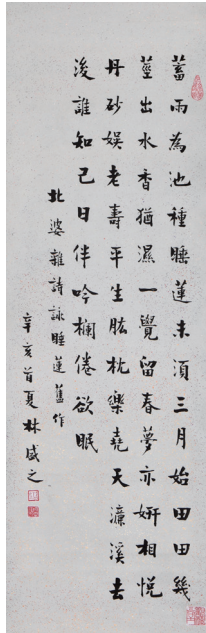 蓄雨為池種睡蓮未須三月始田田幾
莖出水香猶濕一覺留春夢亦妍相悅
丹砂娛老壽平生肱枕樂堯天濂溪去
後誰知己日伴吟欄倦欲眠
北婆雜詩詠睡蓮舊作
辛亥首夏林咸之